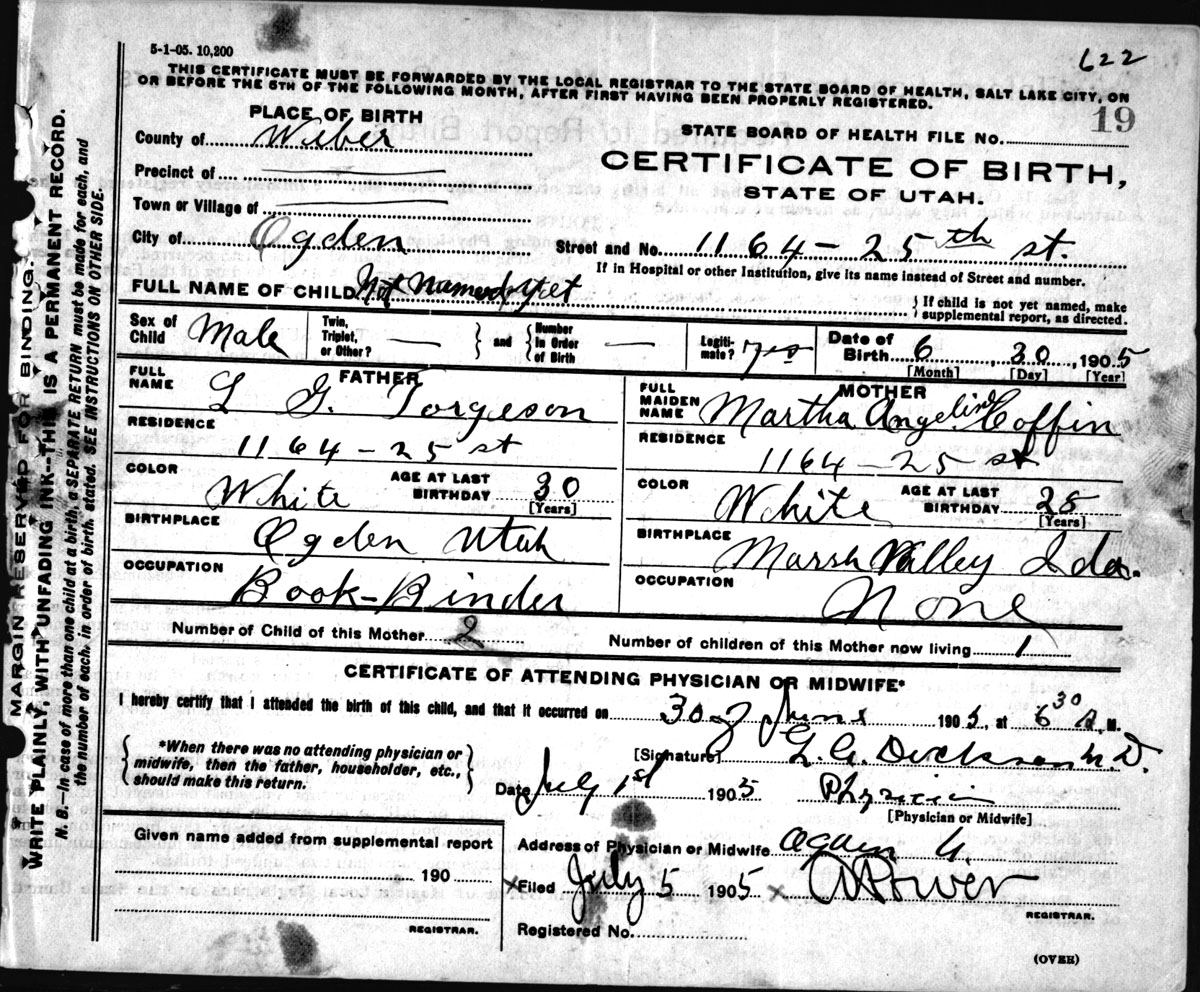 5-1-05. 10,200
622
THIS CERTIFICATE MUST BE FORWARDED BY THE LOCAL REGISTRAR TO THE STATE BOARD OF HEALTH, SALT LAKE CITY, ON
OR BEFORE THE 5TH OF THE FOLLOWING MONTH, AFTER FIRST HAVING BEEN PROPERLY REGISTERED.
PLACE OF BIRTH
STATE BOARD OF HEALTH FILE No. 19
County of Weber
CERTIFICATE OF BIRTH,
Precinct of
STATE OF UTAH.
Town or Village of
City of Ogden Street and No. 1164-25th st.
If in Hospital or other Institution, give its name instead of Street and number.
FULL NAME OF CHILD Not Named yet
{ If child is not yet named, make
supplemental report, as directed.
Sex of Child Male
Twin, Triplet, or Other? —
and
Number in Order of Birth —
Legiti-mate? yes
Date of Birth 6, 30, 1905
[Month] [Day] [Year]
FATHER
FULL NAME L G. Torgeson
RESIDENCE
1164-25 st
COLOR White AGE AT LAST BIRTHDAY 30
[Years]
BIRTHPLACE
Ogden Utah
OCCUPATION
Book-Binder
MOTHER
FULL MAIDEN NAME Martha Angeline Coffin
RESIDENCE
1164-25 st
COLOR White AGE AT LAST BIRTHDAY 25
[Years]
BIRTHPLACE
Marsh Valley Ida.
OCCUPATION
None
Number of Child of this Mother 2
Number of children of this Mother now living 1
CERTIFICATE OF ATTENDING PHYSICIAN OR MIDWIFE*
I hereby certify that I attended the birth of this child, and that it occurred on 30 of June 1905, at 6 30 A. M.
{ *When there was no attending physician or
midwife, then the father, householder, etc.,
should make this return. }
[Signature] Dickson M.D.
Date July 1st 1905 Physician
[Physician or Midwife]
Given name added from supplemental report
190
REGISTRAR.
Address of Physician or Midwife Ogden U.
x Filed July 5 1905 x Power
REGISTRAR.
Registered No.
(OVER)
MARGIN RESERVED FOR BINDING.
WRITE PLAINLY, WITH UNFADING INK--THIS IS A PERMANENT RECORD.
N. B.—In case of more than one child at a birth, a SEPARATE RETURN must be made for each, and
the number of each, in order of birth, stated. SEE INSTRUCTIONS ON OTHER SIDE.